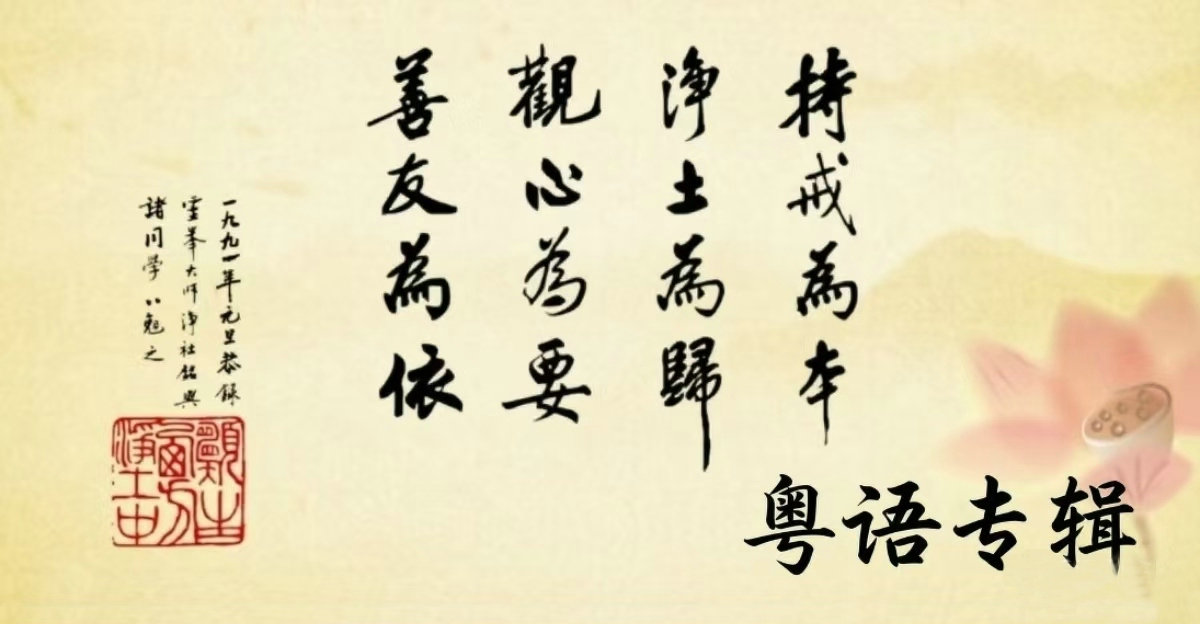 持戒為本
淨土為歸
觀心為要
善友為依
一九九一年元旦恭錄
靈峯大师淨社銘與
諸同学以勉之
願生西方淨土中
粤语专辑